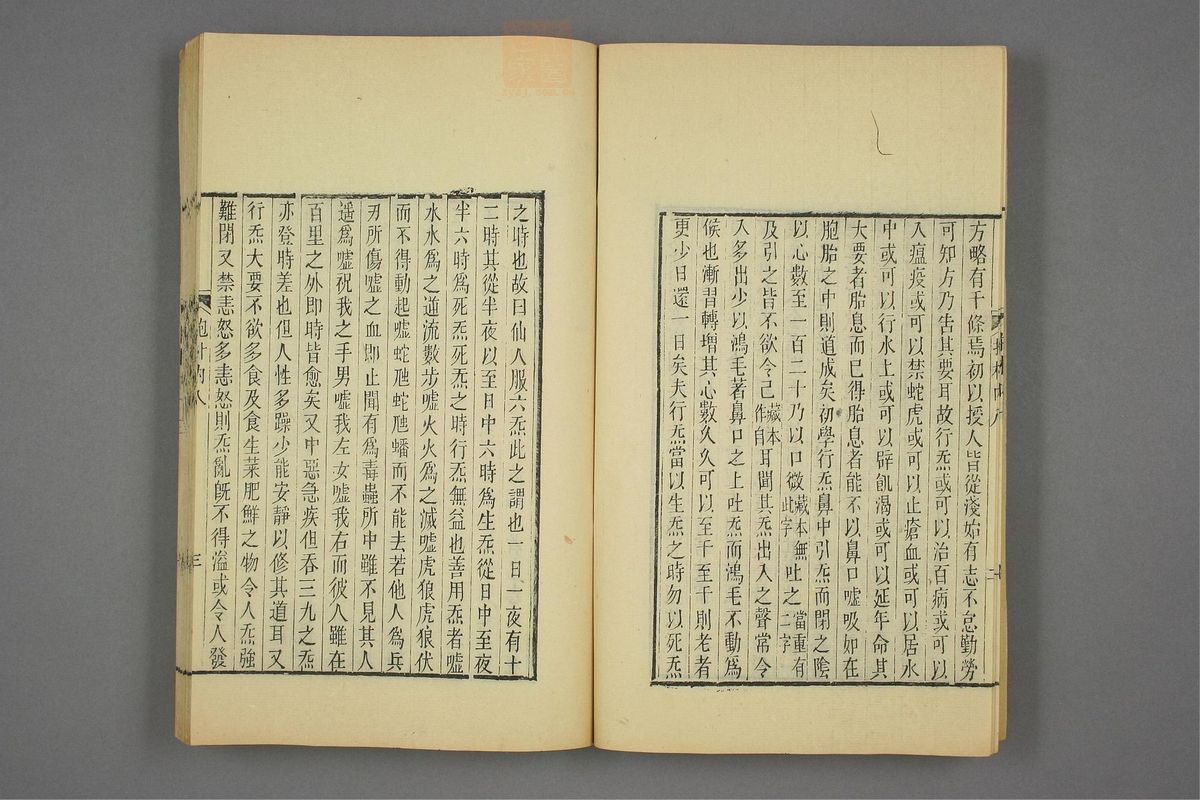 方略有千條焉初以授人皆從淺始有志不怠勤勞
可知方乃吿其要耳故行炁或可以治百病或可以
入瘟疫或可以禁蛇虎或可以止瘡血或可以居水
中或可以行水上或可以辟飢渴或可以延年命其
大要者胎息而已得胎息者能不以鼻口噓吸如在
胞胎之中則道成矣初學行炁鼻中引炁而閉之陰
以心數至一百二十乃以口微藏本無此字吐之當重有二字
及引之皆不欲令己藏本作自耳聞其炁出入之聲常令
入多出少以鴻毛著鼻口之上吐炁而鴻毛不動爲
候也漸習轉增其心數久久可以至千至千則老者
更少日還一日矣夫行炁當以生炁之時勿以死炁
之時也故曰仙人服六炁此之謂也一日一夜有十
二時其從半夜以至日中六時爲生炁從日中至夜
半六時爲死炁死炁之時行炁無益也善用炁者噓
水水爲之逆流數步噓火火爲之滅噓虎狼虎狼伏
而不得動起噓蛇虺蛇虺蟠而不能去若他人爲兵
刃所傷噓之血卽止聞有爲毒蟲所中雖不見其人
遥爲噓祝我之手男噓我左女噓我右而彼人雖在
百里之外卽時皆愈矣又中惡急疾但吞三九之炁
亦登時差也但人性多躁少能安靜以修其道耳又
行炁大要不欲多食及食生菜肥鮮之物令人炁強
難閉又禁恚怒多恚怒則炁亂旣不得溢或令人發
三